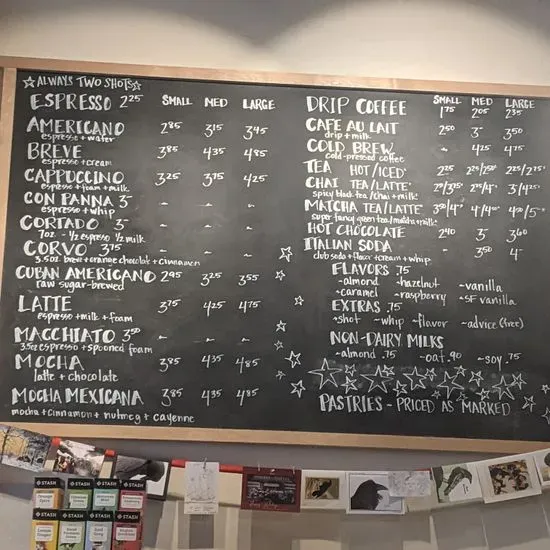 ☆ALWAYS TWO SHOTS☆
ESPRESSO 2.25 SMALL MED LARGE
AMERICANO 2.85 3.15 3.45
espresso + water
BREVE 3.85 4.35 4.85
espresso + cream
CAPPUCCINO 3.25 3.75 4.25
espresso + foam + milk
CON PANNA 3- - -
espresso + whip
CORTADO 3- - -
7oz - 1/2 espresso 1/2 milk
CORVO 3.75
3.5oz breve + orange chocolate + cinnamon
CUBAN AMERICANO 2.95 3.25 3.55
raw sugar-brewed
LATTE 3.75 4.25 4.75
espresso + milk + foam
MACCHIATO 3.50 - -
3.5oz espresso + spooned foam
MOCHA 3.85 4.35 4.85
latte + chocolate
MOCHA MEXICANA 3.85 4.35 4.85
mocha + cinnamon + nutmeg + cayenne
SMALL MED LARGE
DRIP COFFEE 1.75 2.05 2.35
CAFE AU LAIT 2.50 3- 3.50
drip + milk
COLD BREW - 4.25 4.75
cold-pressed coffee
TEA HOT/ICED 2.25 2.25/2.50 2.25/2.75
CHAI TEA/LATTE 2.75/4- 3/4.25
spicy black tea/chai + milk
MATCHA TEA/LATTE 3.50/4- 4/4.50 4.50/5-
super fancy green tea/matcha + milk
HOT CHOCOLATE 2.40 3- 3.60
ITALIAN SODA - 3.50 4-
club soda + flavor + cream + whip
FLAVORS .75
-almond -hazelnut -vanilla
-caramel -raspberry -SF vanilla
EXTRAS .75
+shot -whip -flavor -advice (free)
NON-DAIRY MILKS
-almond .75 -oat .90 -soy .75
PASTRIES - PRICED AS MARKED
STASH STASH STASH STASH
STASH STASH STASH STASH